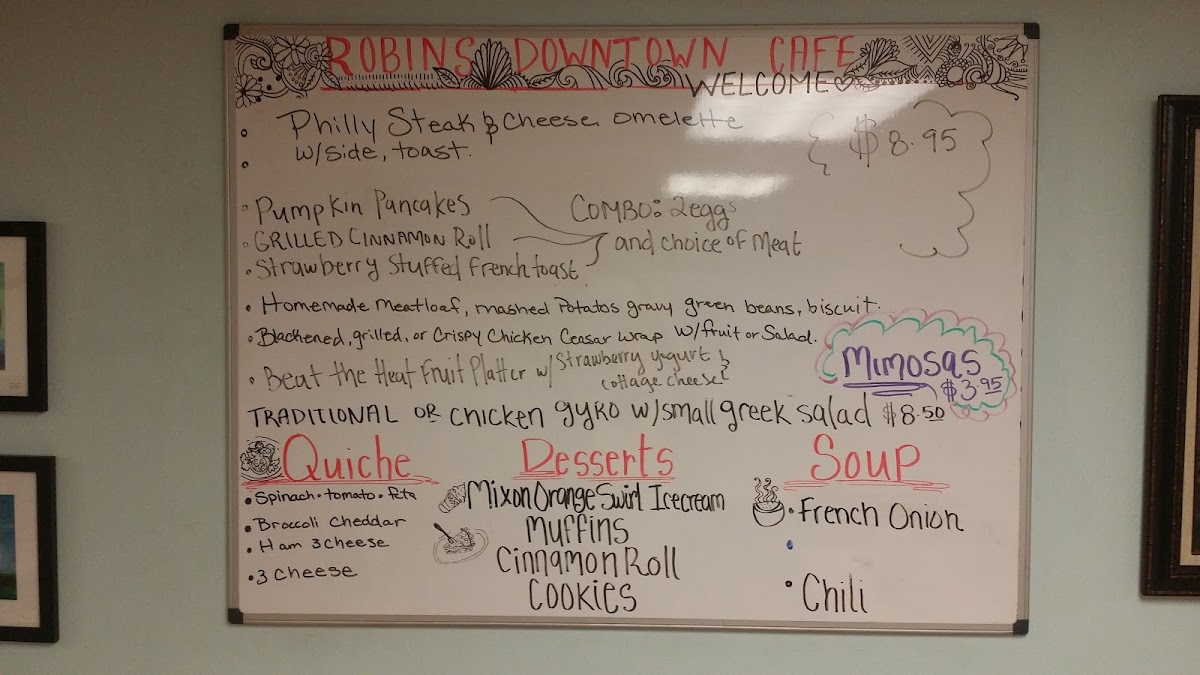 ROBINS DOWNTOWN CAFE
WELCOME
Philly Steak & Cheese omelette
w/side, toast.
$8.95
• Pumpkin Pancakes
• GRILLED CINNAMON Roll
• Strawberry Stuffed French toast
COMBO: 2 eggs
and choice of Meat
• Homemade Meatloaf, mashed Potatos gravy green beans, biscuit.
• Blackened, grilled, or Crispy Chicken Ceasar Wrap w/fruit or Salad.
• Beat the Heat Fruit Platter w/ Strawberry yogurt &
cottage cheese
Mimosas
$3.95
TRADITIONAL OR CHICKEN gyro w/small greek salad $8.50
Quiche
• Spinach • tomato • feta
• Broccoli Cheddar
• Ham 3 cheese
• 3 cheese
Desserts
Mixon Orange Swirl Icecream
Muffins
Cinnamon Roll
Cookies
Soup
• French Onion
• Chili